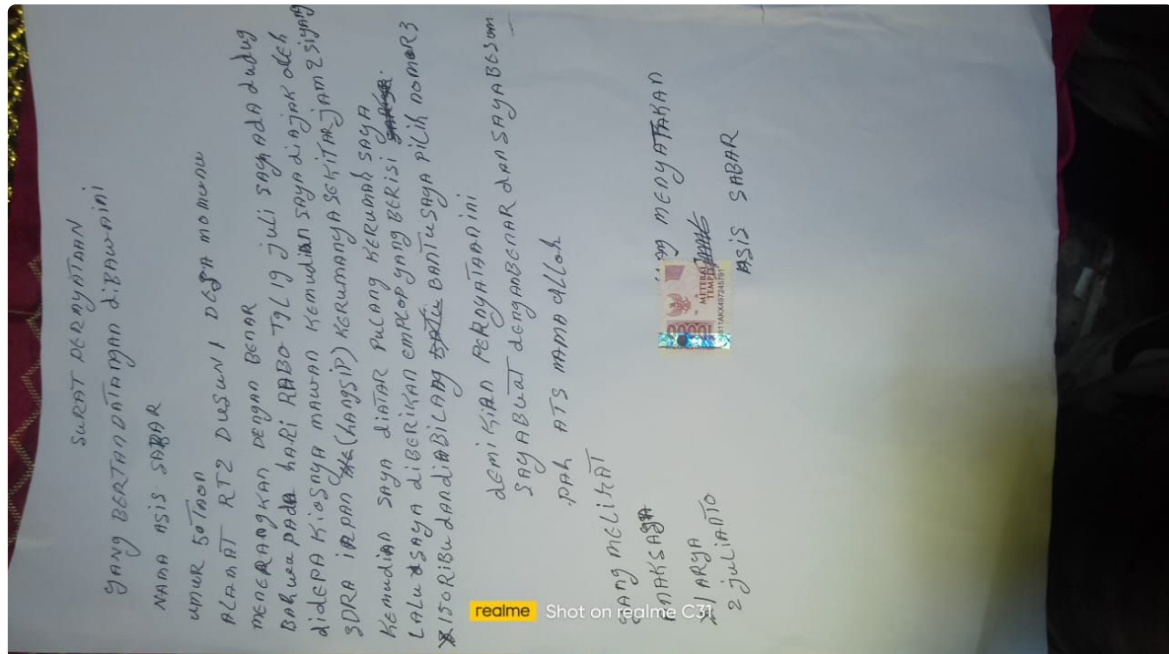 SURAT PERNYATAAN
YANG BERTANDATANGAN diBAWAINI
NAMA ASIS SABAR
UMUR 50 TAON
ALAMAT RT2 DUSUN 1 DESA MOMUNU
MENERANGKAN DENGAN BENAR
BAHWA PADA HARI RABO TGL 19 juli SAYA ADA dudug
diDEPA KiOSNYA MAWAN KEMUDIAN SAYA diAJAK OLEH
SDRA IRPAN (HANSIP) KERUMANYA SEKITAR JAM 2 SiYANG
KEMUDIAN SAYA diATAR PULANG KERUMAH SAYA
LALU SAYA diBERIKAN EMPLOP YANG BERISI
150 RiBU DAN diBiLANG BANTU SAYA PILIH NOMOR 3
dEMIKIAN PERNYATAAN iNi
SAYA BUAT DENGAN BENAR dAN SAYA BESOM
PAH ATS NAMA ALLOH
YANG MELIHAT
ANAK SAYA
1 ARYA
2 juliANTO
YANG MENYATAKAN
METERAI
TEMPEL
ASIS SABAR
realme Shot on realme C31